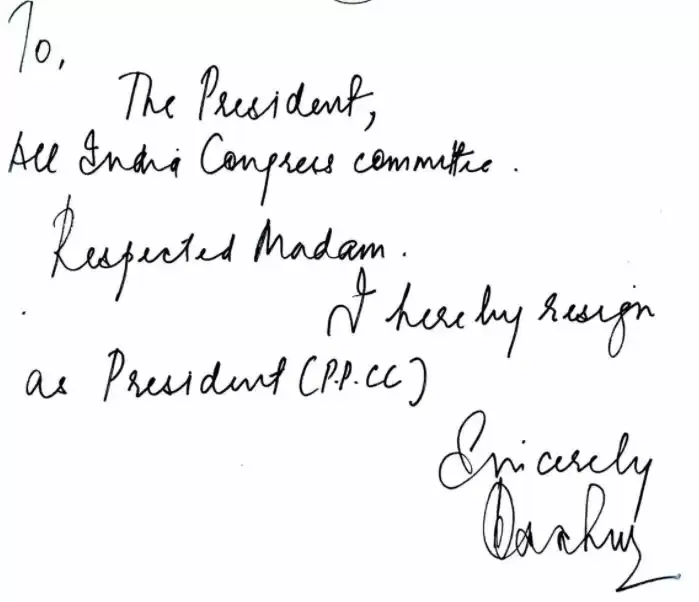 To,
The President,
All India Congress committee.
Respected Madam.
I hereby resign
as President (P.P.CC)
Sincerely